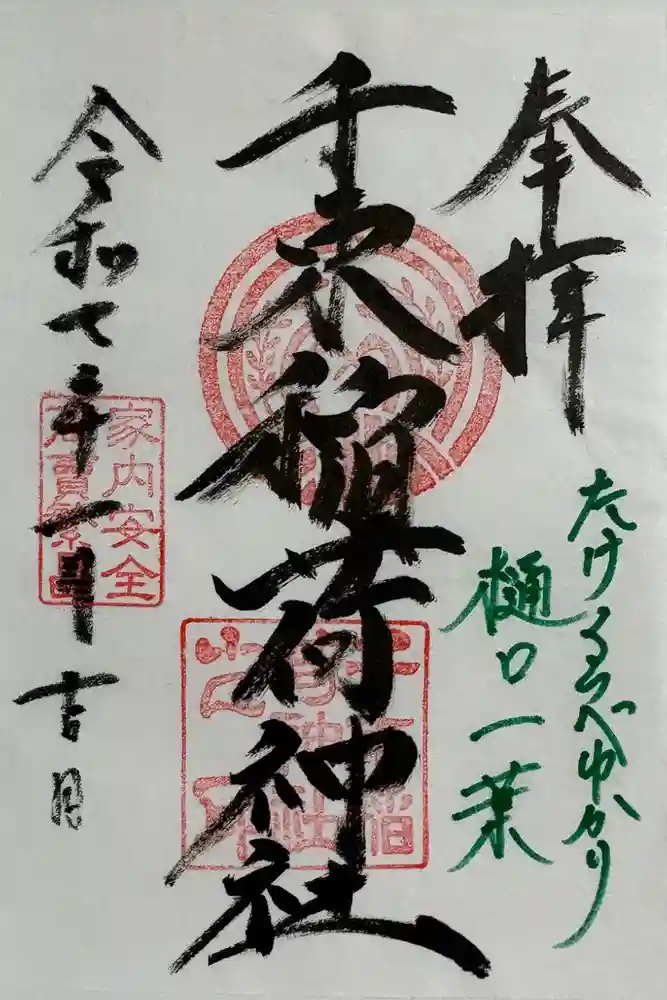 奉拝
たけくらべゆかり
樋口一葉
千束稲荷神社
令和七年一月吉日
家内安全
商賣繁昌